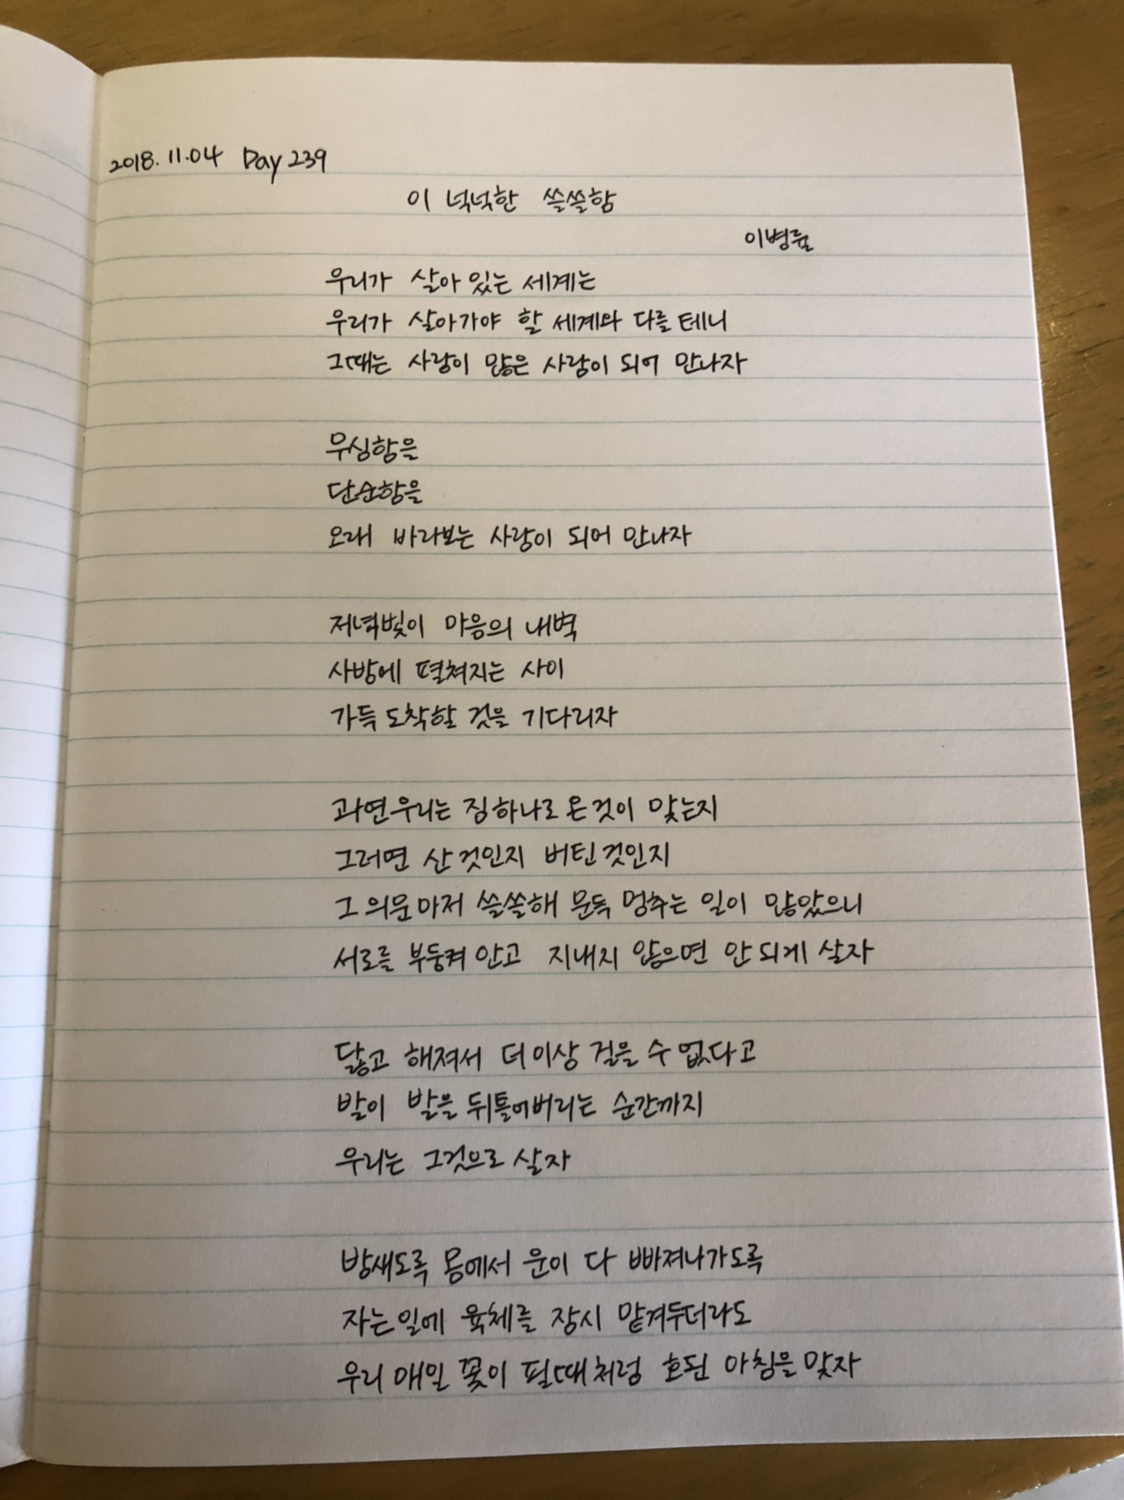 2018. 11.04 Day 239
이 넉넉한 쓸쓸함
이병률
우리가 살아 있는 세계는
우리가 살아가야 할 세계와 다를 테니
그때는 사랑이 많은 사람이 되어 만나자
무심함을
단순함을
오래 바라보는 사람이 되어 만나자
저녁빛이 마음의 내벽
사방에 펼쳐지는 사이
가득 도착할 것을 기다리자
과연 우리는 점 하나로 온 것이 맞는지
그러면 산 것인지 버틴 것인지
그 의문마저 쓸쓸해 문득 멈추는 일이 많았으니
서로를 부둥켜 안고 지내지 않으면 안 되게 살자
닳고 해져서 더 이상 걸을 수 없다고
발이 발을 뒤틀어버리는 순간까지
우리는 그것으로 살자
밤새도록 몸에서 운이 다 빠져나가도록
자는 일에 육체를 잠시 맡겨두더라도
우리 매일 꽃이 필 때처럼 호된 아침을 맞자